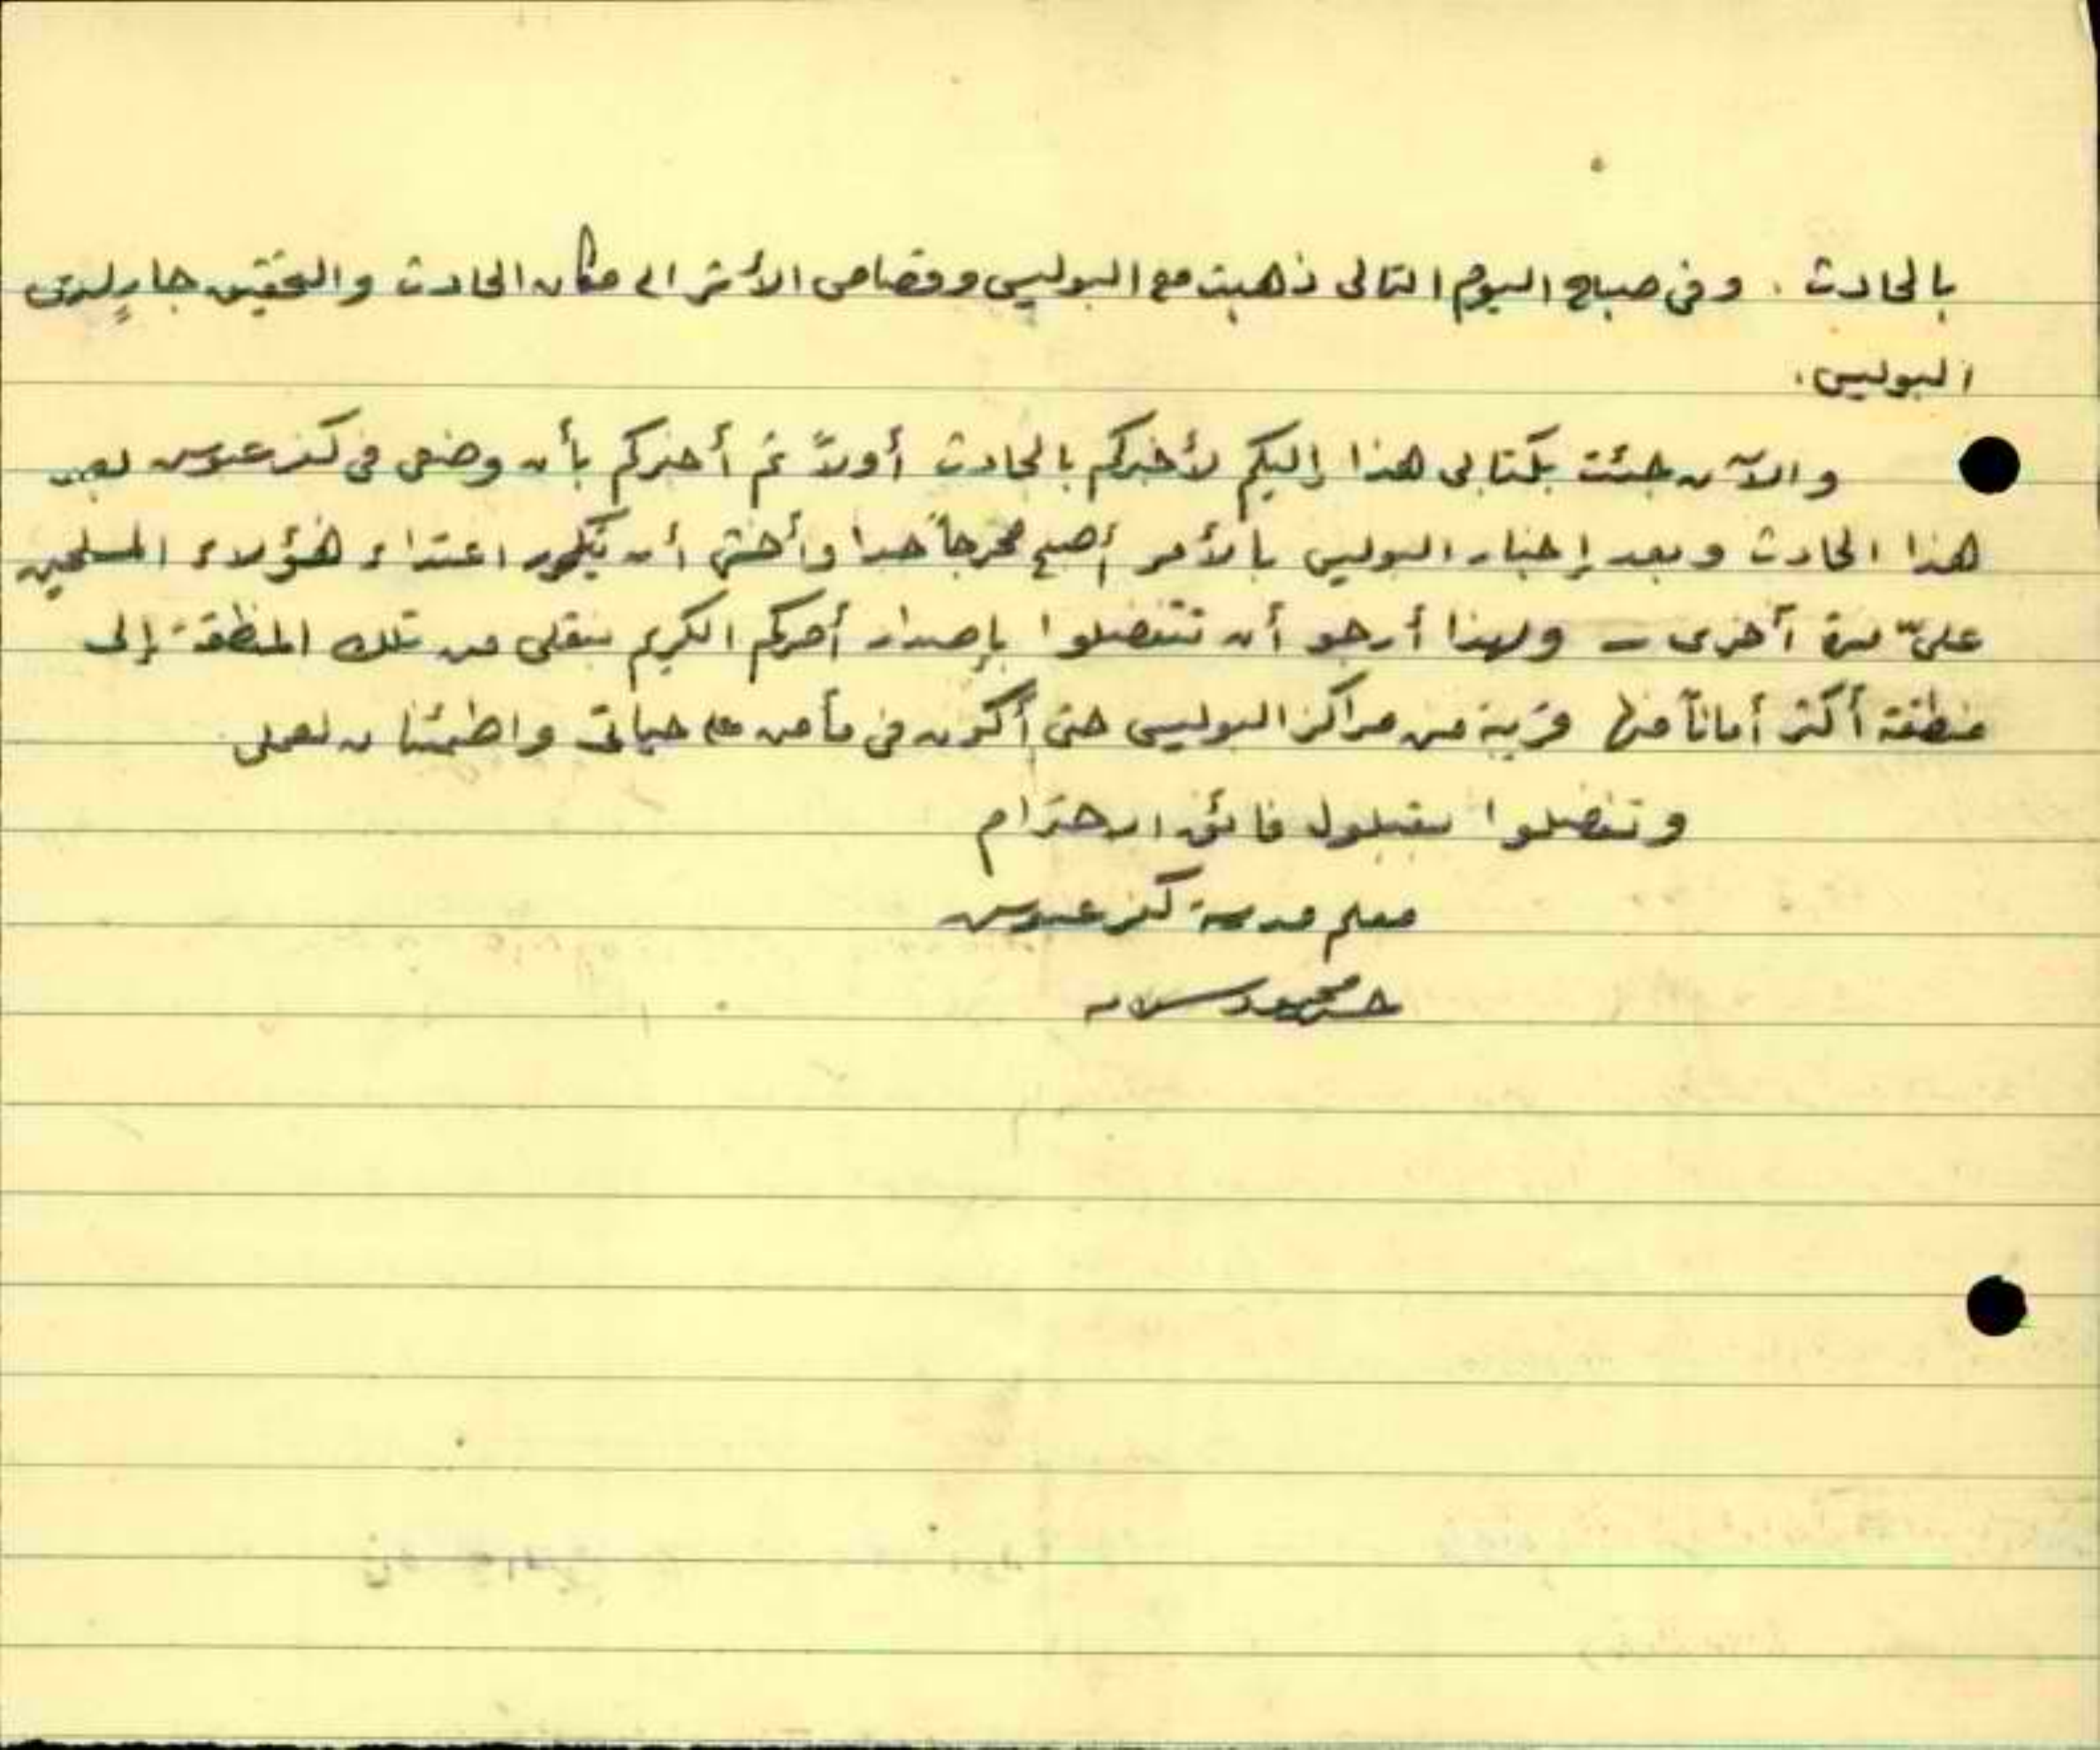 بالحادث . وفى صباح اليوم التالى ذهبت مع البوليس وقصاص الأثر الى مكان الحادث والتحقيق جارٍ لدى
البوليس .
والآن جئت بكتابى هذا إليكم لأخبركم بالحادث أولاً ثم أخبركم بأن وضعى فى كفر عبوش بعد
هذا الحادث وبعد إخبار البوليس بالأمر أصبح محرجاً جدا وأخشى أن يتكرر اعتداء هؤلاء المسلحين
علىّ مرة آخرى – ولهذا أرجو أن تتفضلوا بإصدار أمركم الكريم بنقلى من تلك المنطقة إلى
منطقة أكثر أماناً منها قريبة من مراكز البوليس حتى أكون فى مأمن على حياتى واطمئنان لعملى
وتفضلوا بقبول فائق الاحترام
معلم مدرسة كفر عبوش
حسن محمود سلامه